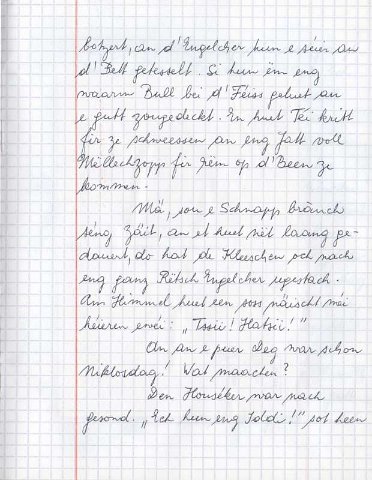 botzert, an d'Engelcher hun e séier an
d'Bett getesselt. Si hun ëm eng
waarm Bull bei d'Féiss geluet an
e gutt zougedeckt. En huet Téi kritt
fir ze schweessen an eng Jatt voll
Mëllechzopp fir rëm op d'Been ze
kommen.
Mä, sou e Schnapp bräuch
séng Zäit, an et huet nët laang ge-
dauert, do hat de Kleeschen och nach
eng ganz Rëtsch Engelcher ugestach.
Am Himmel huet een soss näischt méi
héieren ewéi: „Tssii! Hatsii!"
An an e puer Deg war schon
Niklosdag! Wat maachen?
Den Houséker war nach
gesond. „Ech hun eng Iddi!" sot heen